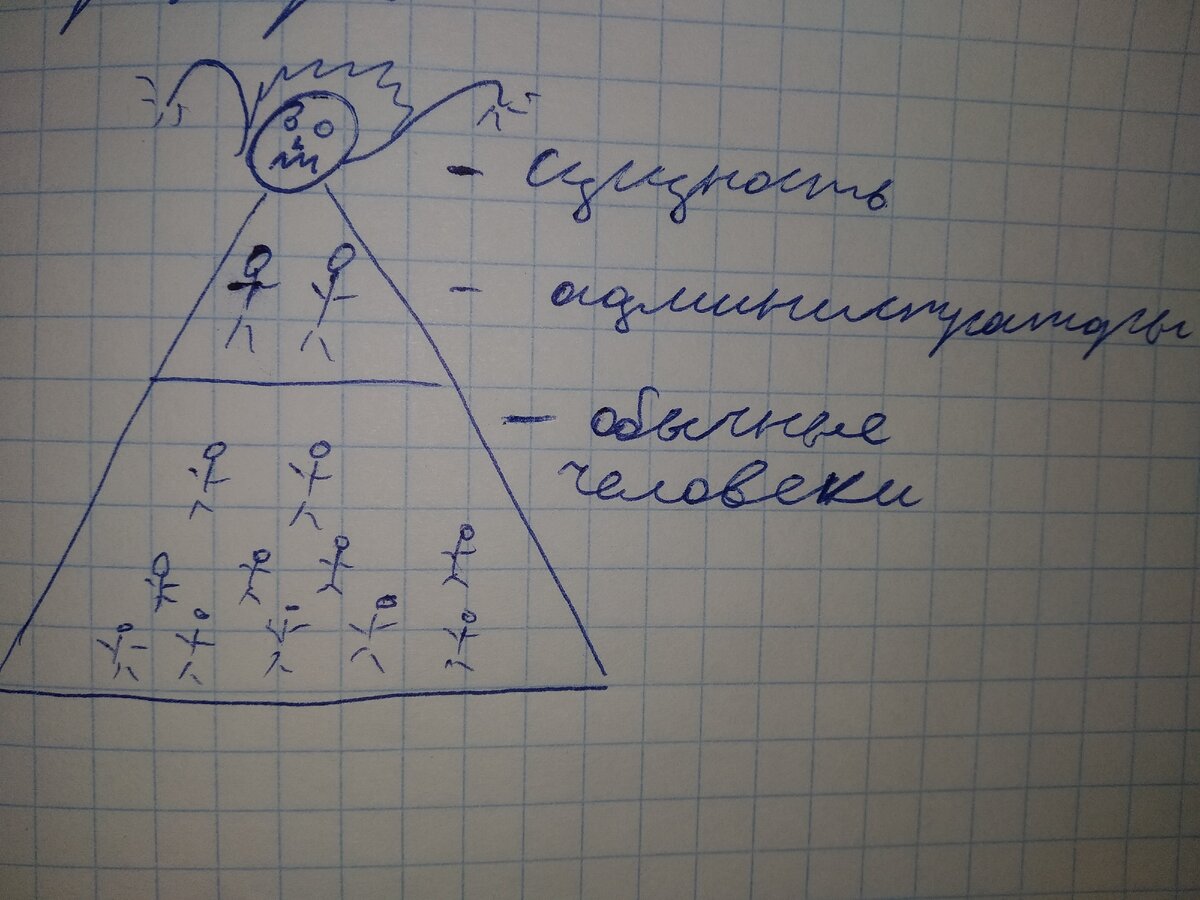 - сущность
- администраторы
- обычные
человеки